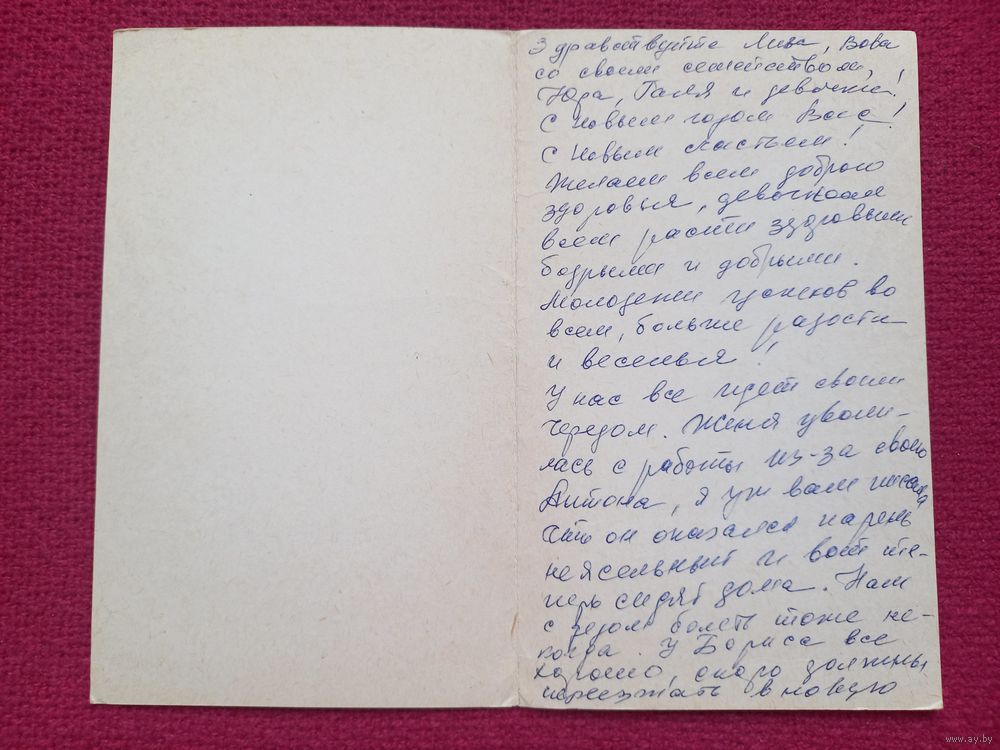 Здравствуйте Лиза, Вова
со своим семейством,
Юра, Галя и девочки!
С Новым годом Вас!
С Новым счастьем!
Желаем всем доброго
здоровья, девочкам
всем расти здоровыми
бодрыми и добрыми.
Молодежи успехов во
всем, больше радости
и веселья!
У нас все идет своим
чередом. Женя уволи-
лась с работы из-за своего
Антона, я уж вам писала
что он оказался парень
неясельный и вот те-
перь сидят дома. Нам
с дедом болеть тоже не-
когда. У Бориса все
хорошо, скоро должны
переезжать в новую
www.ay.by